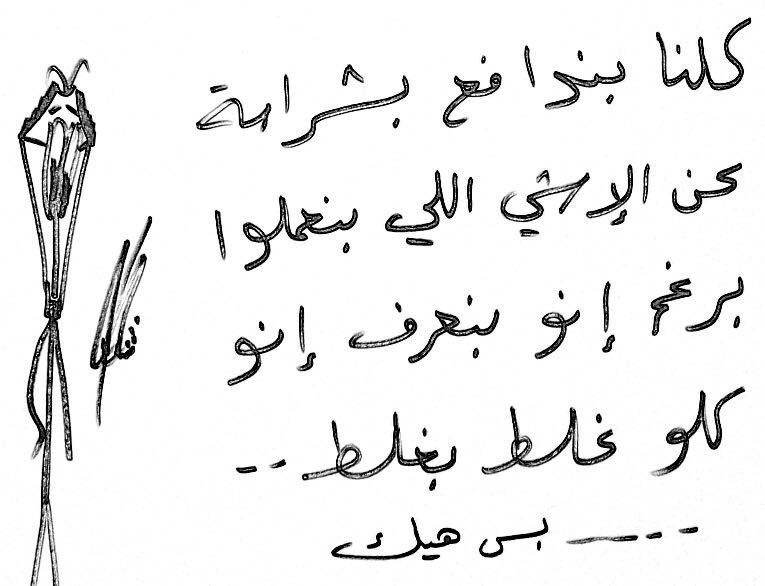 كلنا بندافع بشراسة
عن الإشي اللي بنعملوا
برغم إنو بنعرف إنو
كلو غلط بغلط --
---- بس هيك